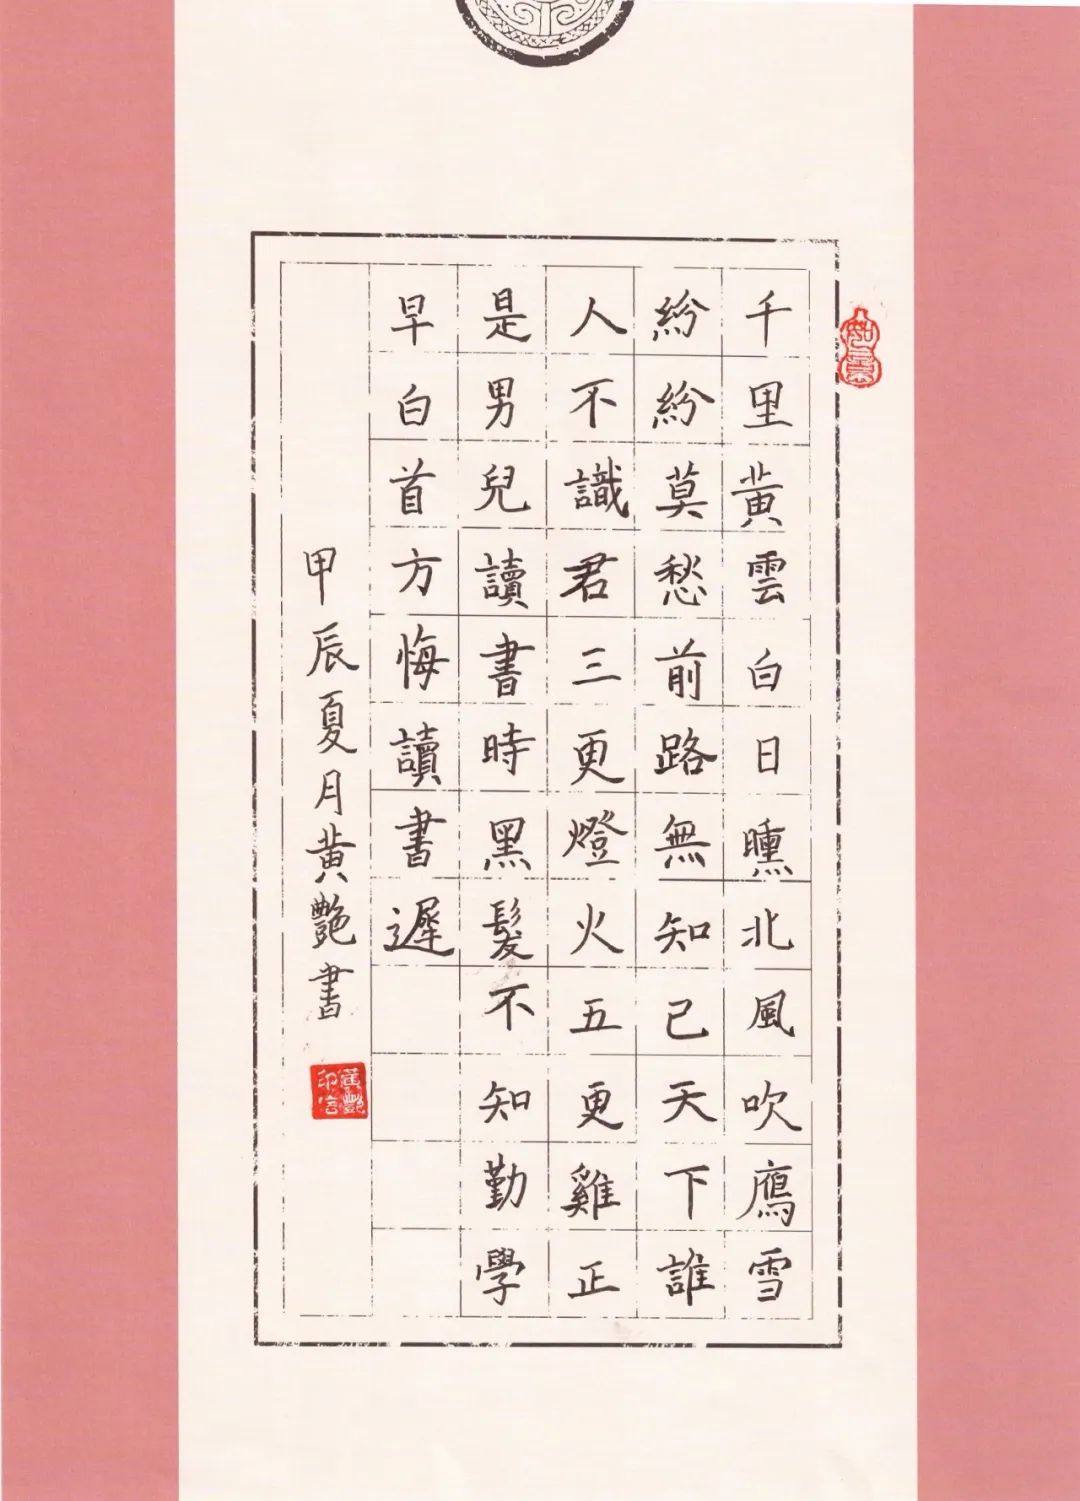 千里黃雲白日曛北風吹鴈雪
紛紛莫愁前路無知己天下誰
人不識君三更燈火五更雞正
是男兒讀書時黑髮不知勤學
早白首方悔讀書遲
甲辰夏月黃艷書
黃艷印信